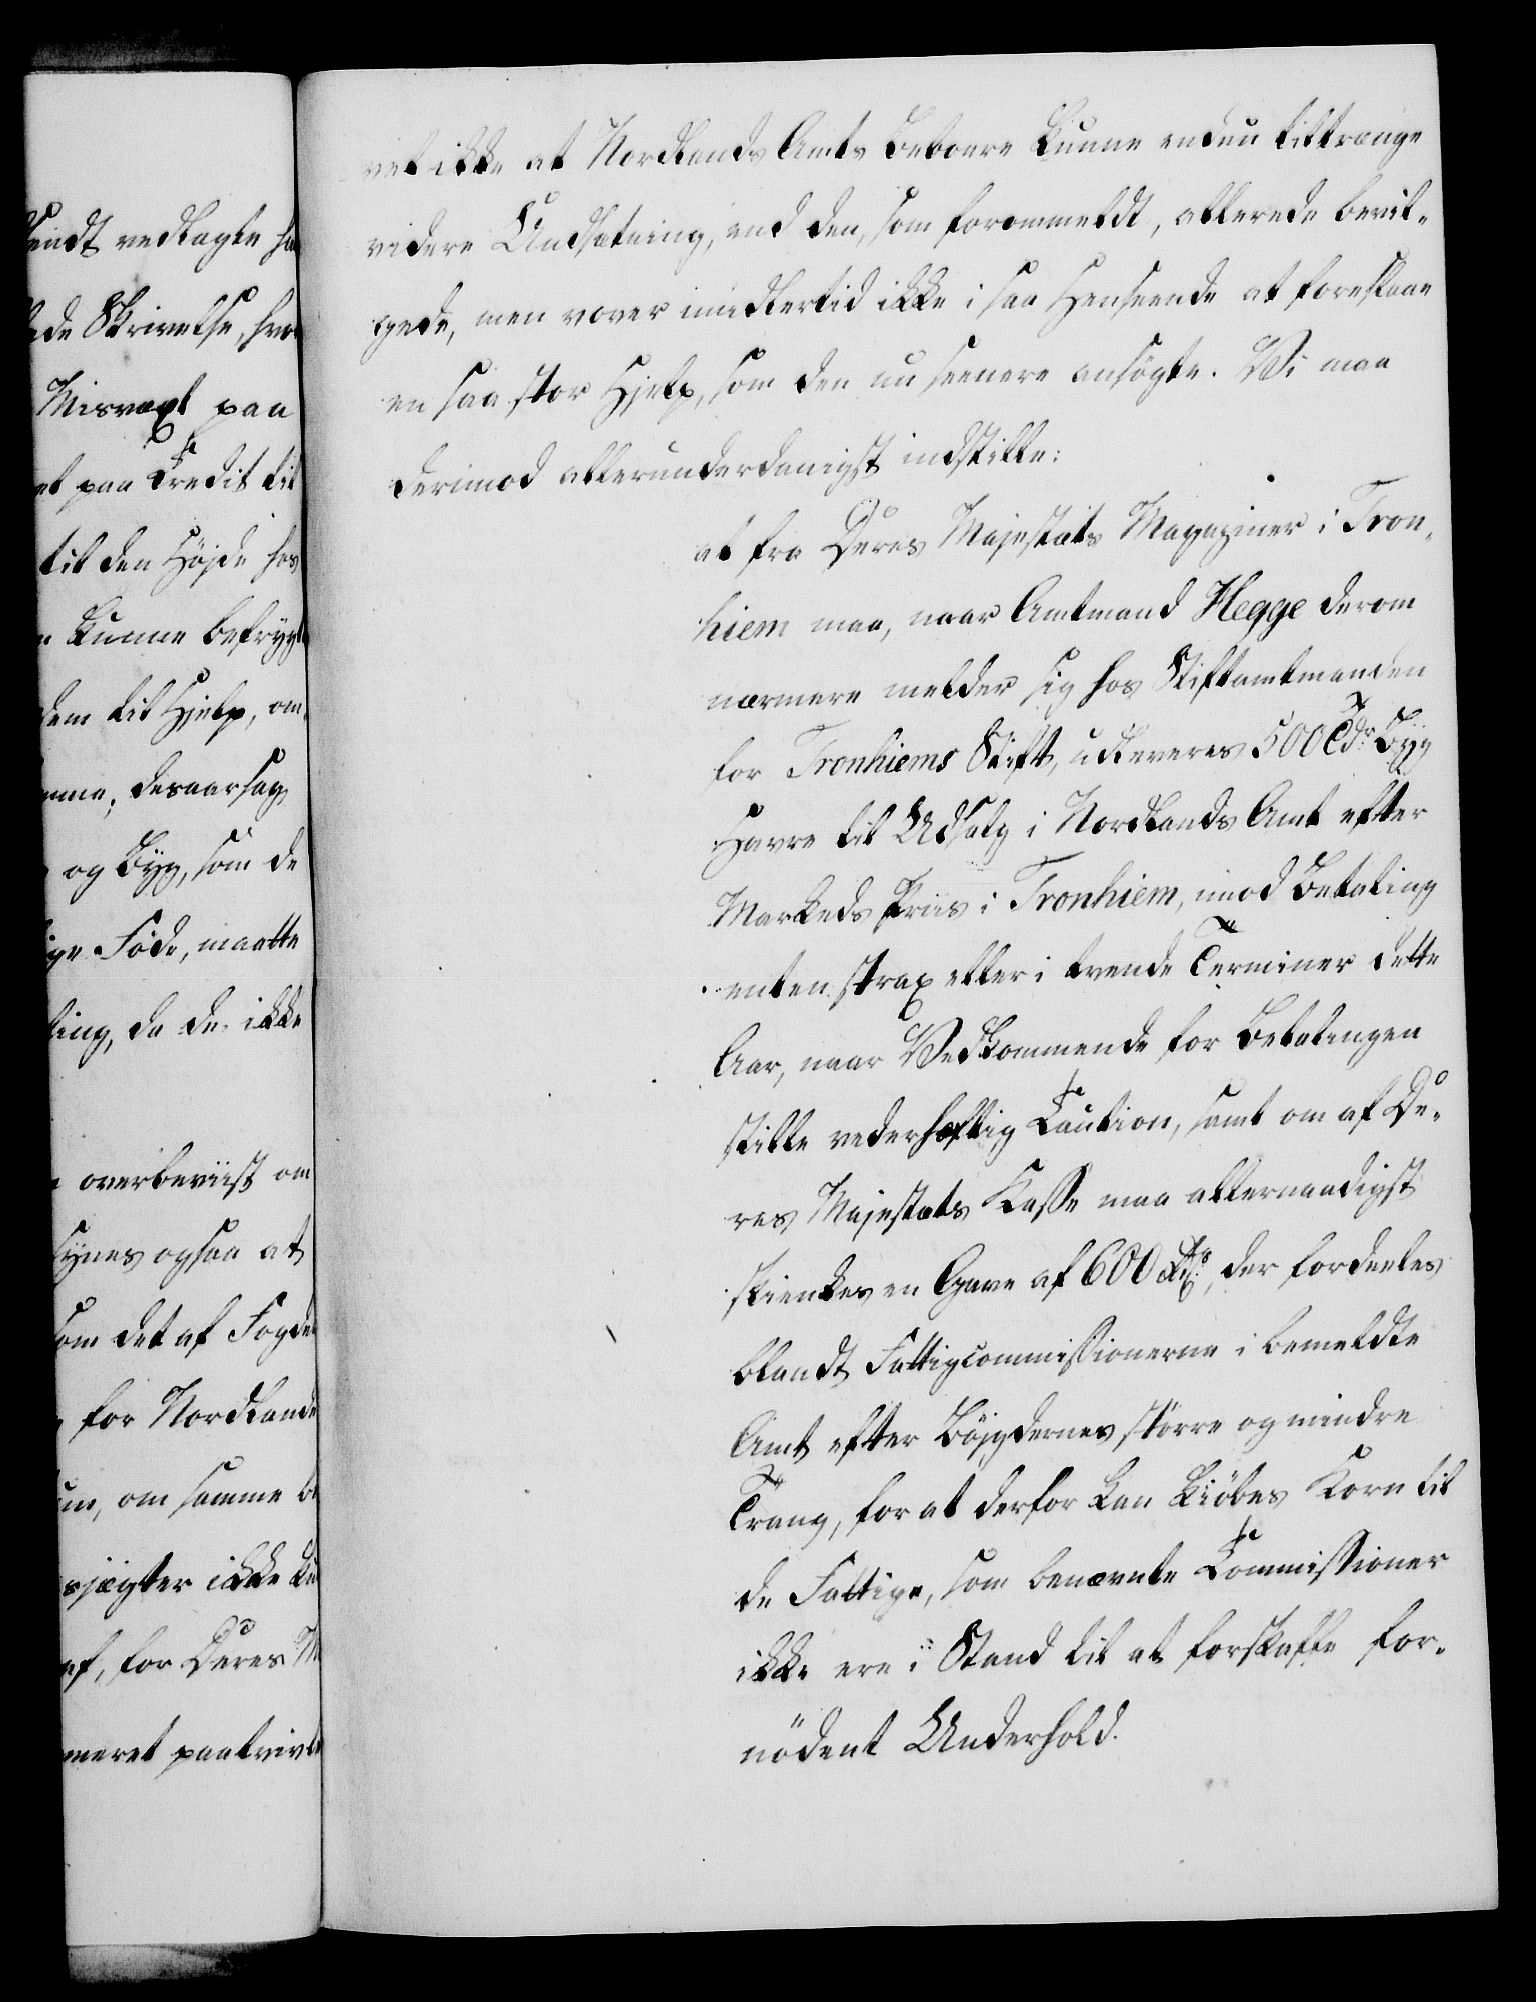 sendt vedlagte
Skrivelse,
Misvæxt paa
paa Credit til
til den Høyde hos
kunne befrygt
dem til Hjelp, om
desaarsag
og Byg, som de
Føde, maatte
da de ikke
overbeviist om
synes ogsaa at
som det af Foged
for Nordland
om samme
ikke
for Deres M
paatvivl
vel ikke at Nordlands Amts Beboere kunne endnu tiltrænge
videre Undsætning, end den, som forommeldt, allerede bevil-
gede, men vover imidlertid ikke i saa Henseende at foreslaae
en saa stor Hjelp, som den nu seenere ansøgte. Vi maa
derimod allerunderdanigst indstille:
at fra Deres Majestæts Magaziner i Tron-
hiem maa, naar Amtmand Hegge derom
nærmere melder sig hos Stiftamtmanden
for Tronhiems Stift, udleveres 500 Tdr. Byg
Havre til Udsalg i Nordlands Amt efter
Markeds Priis i Tronhiem, imod Betaling
enten strax eller i tvende Terminer dette
Aar, naar Vedkommende for Betalingen
stille vederhæftig Caution, samt om af De-
res Majestæts Kasse maa allernaadigst
skienkes en Gave af 600 Rd., der fordeeles
blandt Fattigcommissionerne i bemeldte
Amt efter Bøjgdernes større og mindre
Trang, for at derfor kan kiöbes Korn til
de Fattige, som benævnte Commissioner
ikke ere i Stand til at forskaffe for-
nödent Underhold.